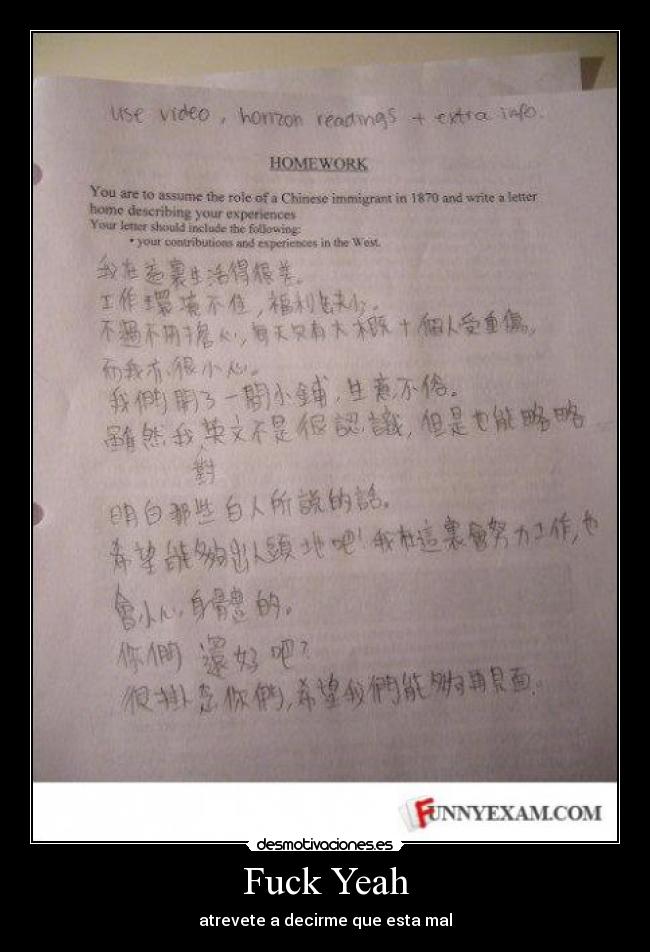 use video, horizon readings + extra info.
HOMEWORK
You are to assume the role of a Chinese immigrant in 1870 and write a letter
home describing your experiences
Your letter should include the following:
• your contributions and experiences in the West.
我在這裏生活得很差。
工作環境不佳，福利缺少。
不過不用擔心，每天只有大概十個人受重傷，
而我亦很小心。
我們開了一間小鋪，生意不俗。
雖然我英文不是很認識，但是也能略略
對
明白那些白人所說的話。
希望能夠出人頭地吧！我在這裏會努力工作，也
會小心身體的。
你們還好吧？
很掛念你們，希望我們能夠再見面。
FUNNYEXAM.COM
desmotivaciones.es
Fuck Yeah
atrevete a decirme que esta mal